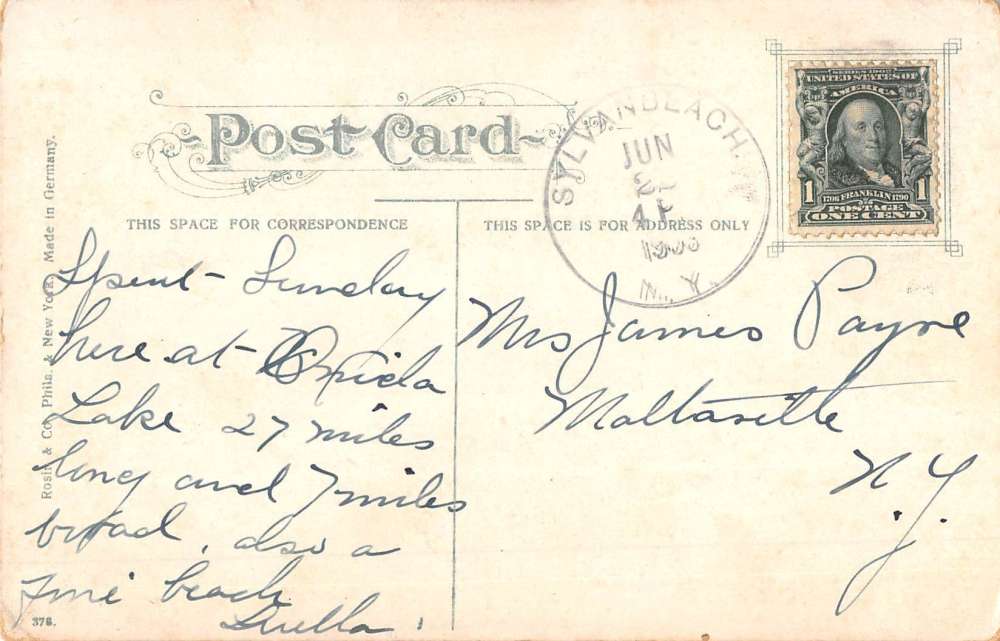 Post Card
THIS SPACE FOR CORRESPONDENCE
THIS SPACE IS FOR ADDRESS ONLY
Spent Sunday
here at Oneida
Lake 27 miles
long and 7 miles
broad, also a
fine beach
Luella.
Mrs James Payne
Maltaville
N.Y.
SYLVAN BEACH.
JUN
N.Y.
SERIES 1902
UNITED STATES OF
AMERICA
1 1
1706 FRANKLIN 1790
POSTAGE
ONE CENT
Rosin & Co. Phila. & New York. Made in Germany.
378.